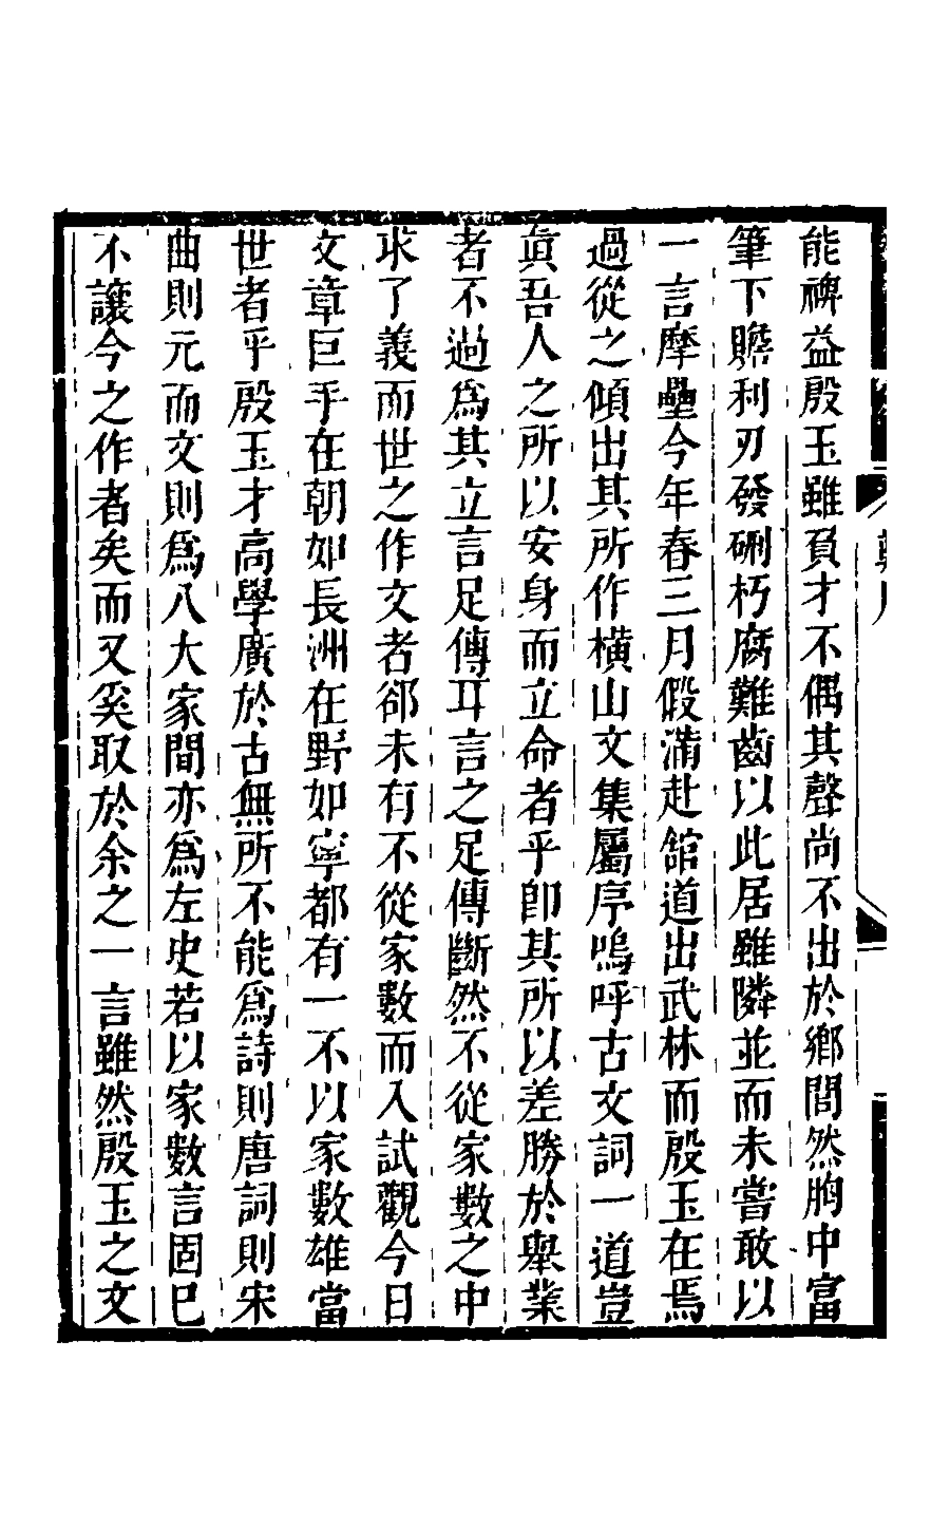 能裨益殷玉雖負才不偶其聲尚不出於鄉閭然胸中富
筆下贍利刃發硎朽腐難齒以此居雖隣並而未嘗敢以
一言摩壘今年春三月假滿赴舘道出武林而殷玉在焉
過從之傾出其所作橫山文集屬序嗚呼古文詞一道豈
眞吾人之所以安身而立命者乎卽其所以差勝於舉業
者不過爲其立言足傳耳言之足傳斷然不從家數之中
求了義而世之作文者郤未有不從家數而入試觀今日
文章巨手在朝如長洲在野如寧都有一不以家數雄當
世者乎殷玉才高學廣於古無所不能爲詩則唐詞則宋
曲則元而文則爲八大家間亦爲左史若以家數言固已
不讓今之作者矣而又奚取於余之一言雖然殷玉之文